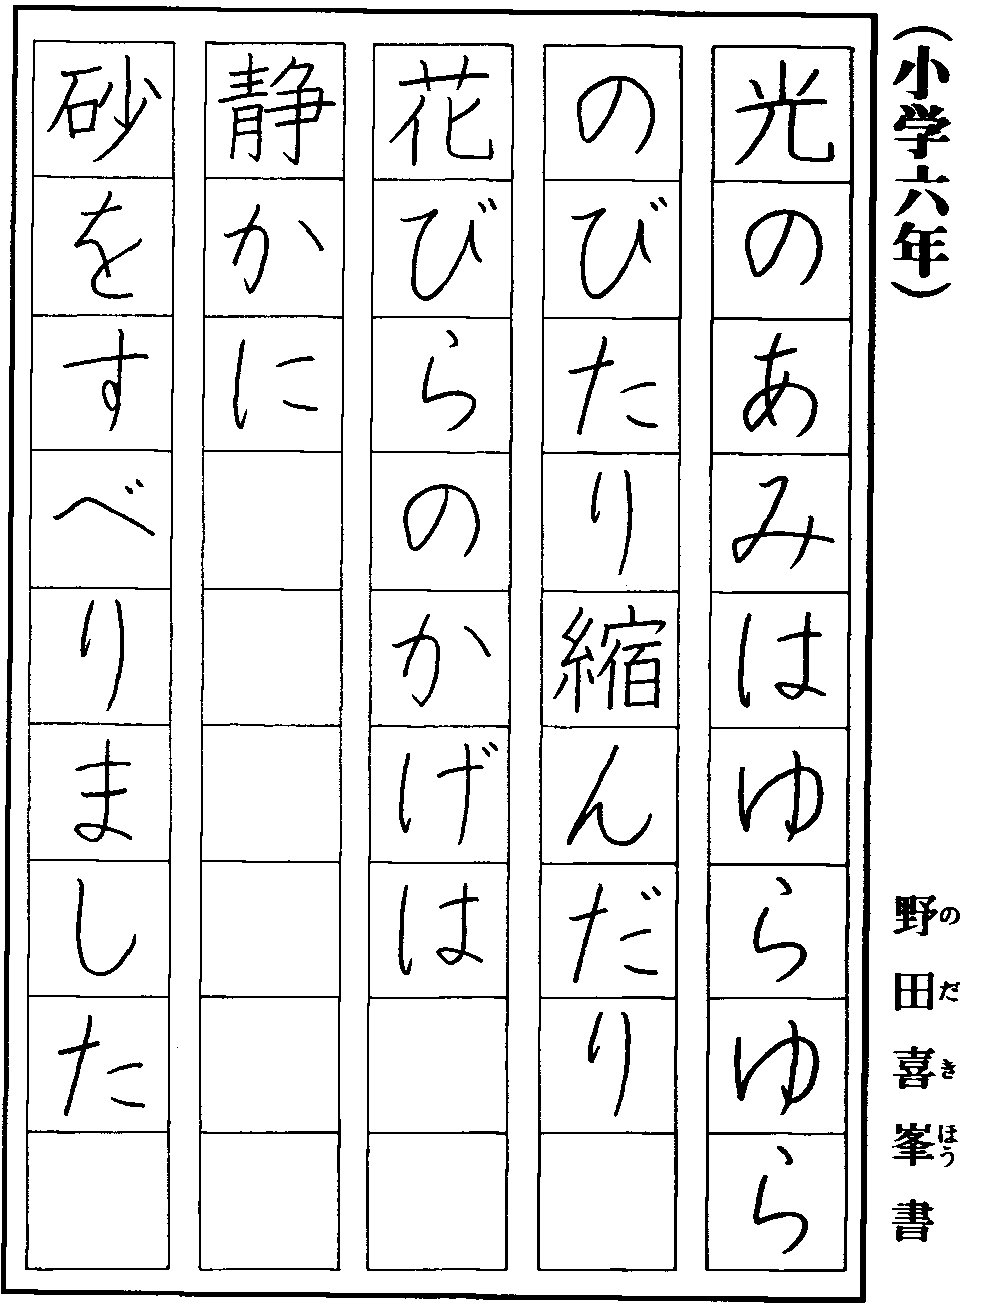 （小学六年）
野田喜峯書
のだきほう
光のあみはゆらゆら
のびたり縮んだり
花びらのかげは
静かに
砂をすべりました